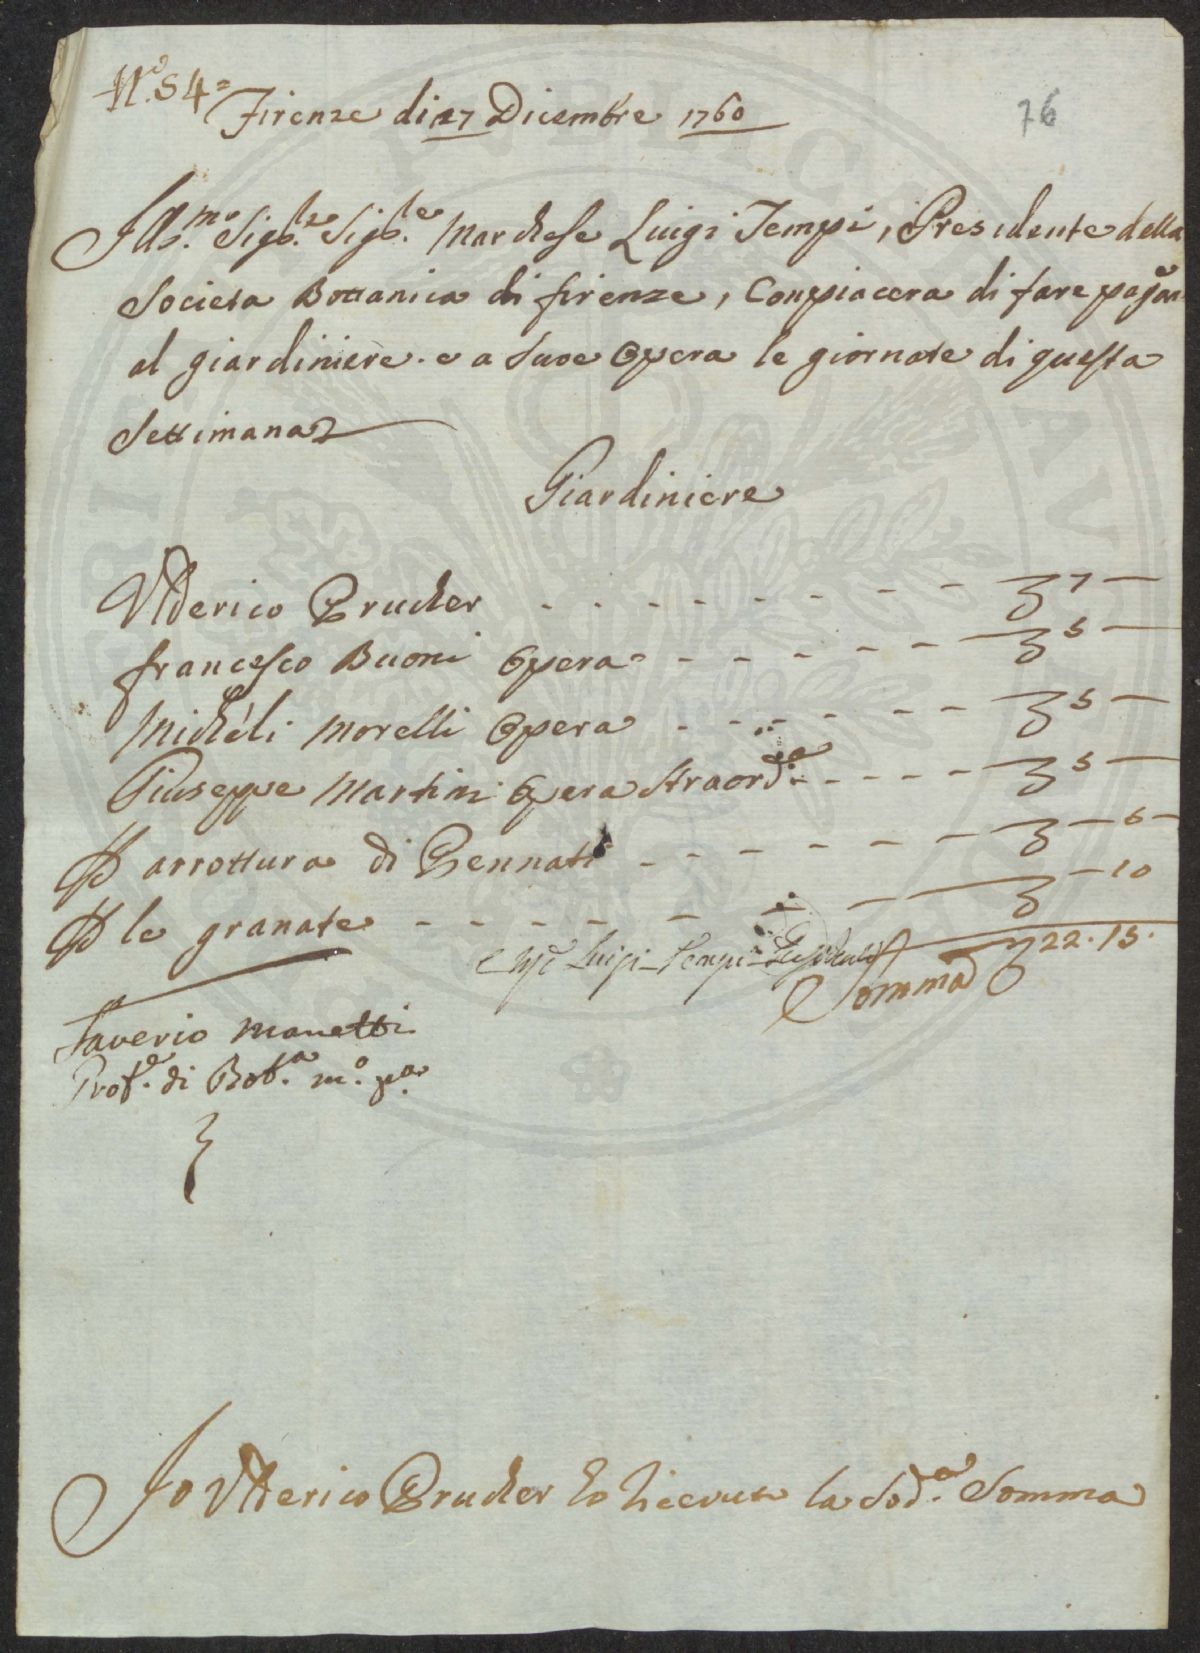 N.º 54=
Firenze di 27 Dicembre 1760
76
Ill.mo Sig.re Sig.re Marchese Luigi Tempi, Presidente della
Societa Bottanica di firenze, Conpiacera di fare pagare
al giardiniere e a sue Opera le giornate di questa
Settimana
Giardiniere
Ulderico Prucher - - - - - - - - 7 —
francesco Buoni Opera - - - - - - 5 —
Micheli Morelli Opera - - - - - - 5 —
Giuseppe Martini Opera straord.a - - - - 5 —
P arrottura di Pennati - - - - - - — 5 —
P le granate - - - - - - — 10
Luigi Tempi Presidente
Somma 22.15.
Saverio Manetti
Prof.e di Bot.a m.o p.a
Io Ulderico Prucher ho riceuto la sod.a Somma